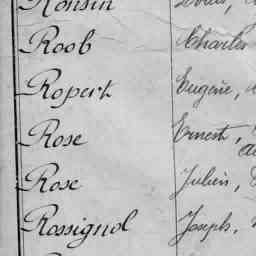 Ronsin Louis,
Roob Charles
Ropert Eugène,
Rose Ernest,
Rose Julien,
Rossignol Joseph,